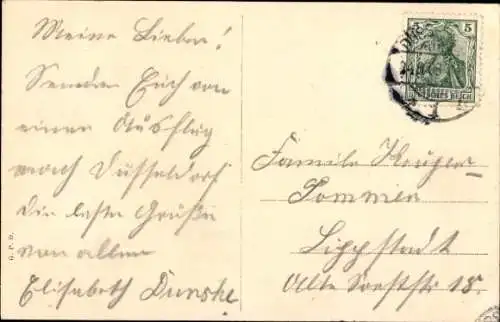 Meine Lieben!
Senden Euch von
einem Ausflug
nach Düsseldorf
die besten Grüße
von allen
Elisabeth Dunske
G. P. D.
5
DEUTSCHES REICH
Familie Krüger-
Sommer
Lippstadt
Alte Soeststr 18.